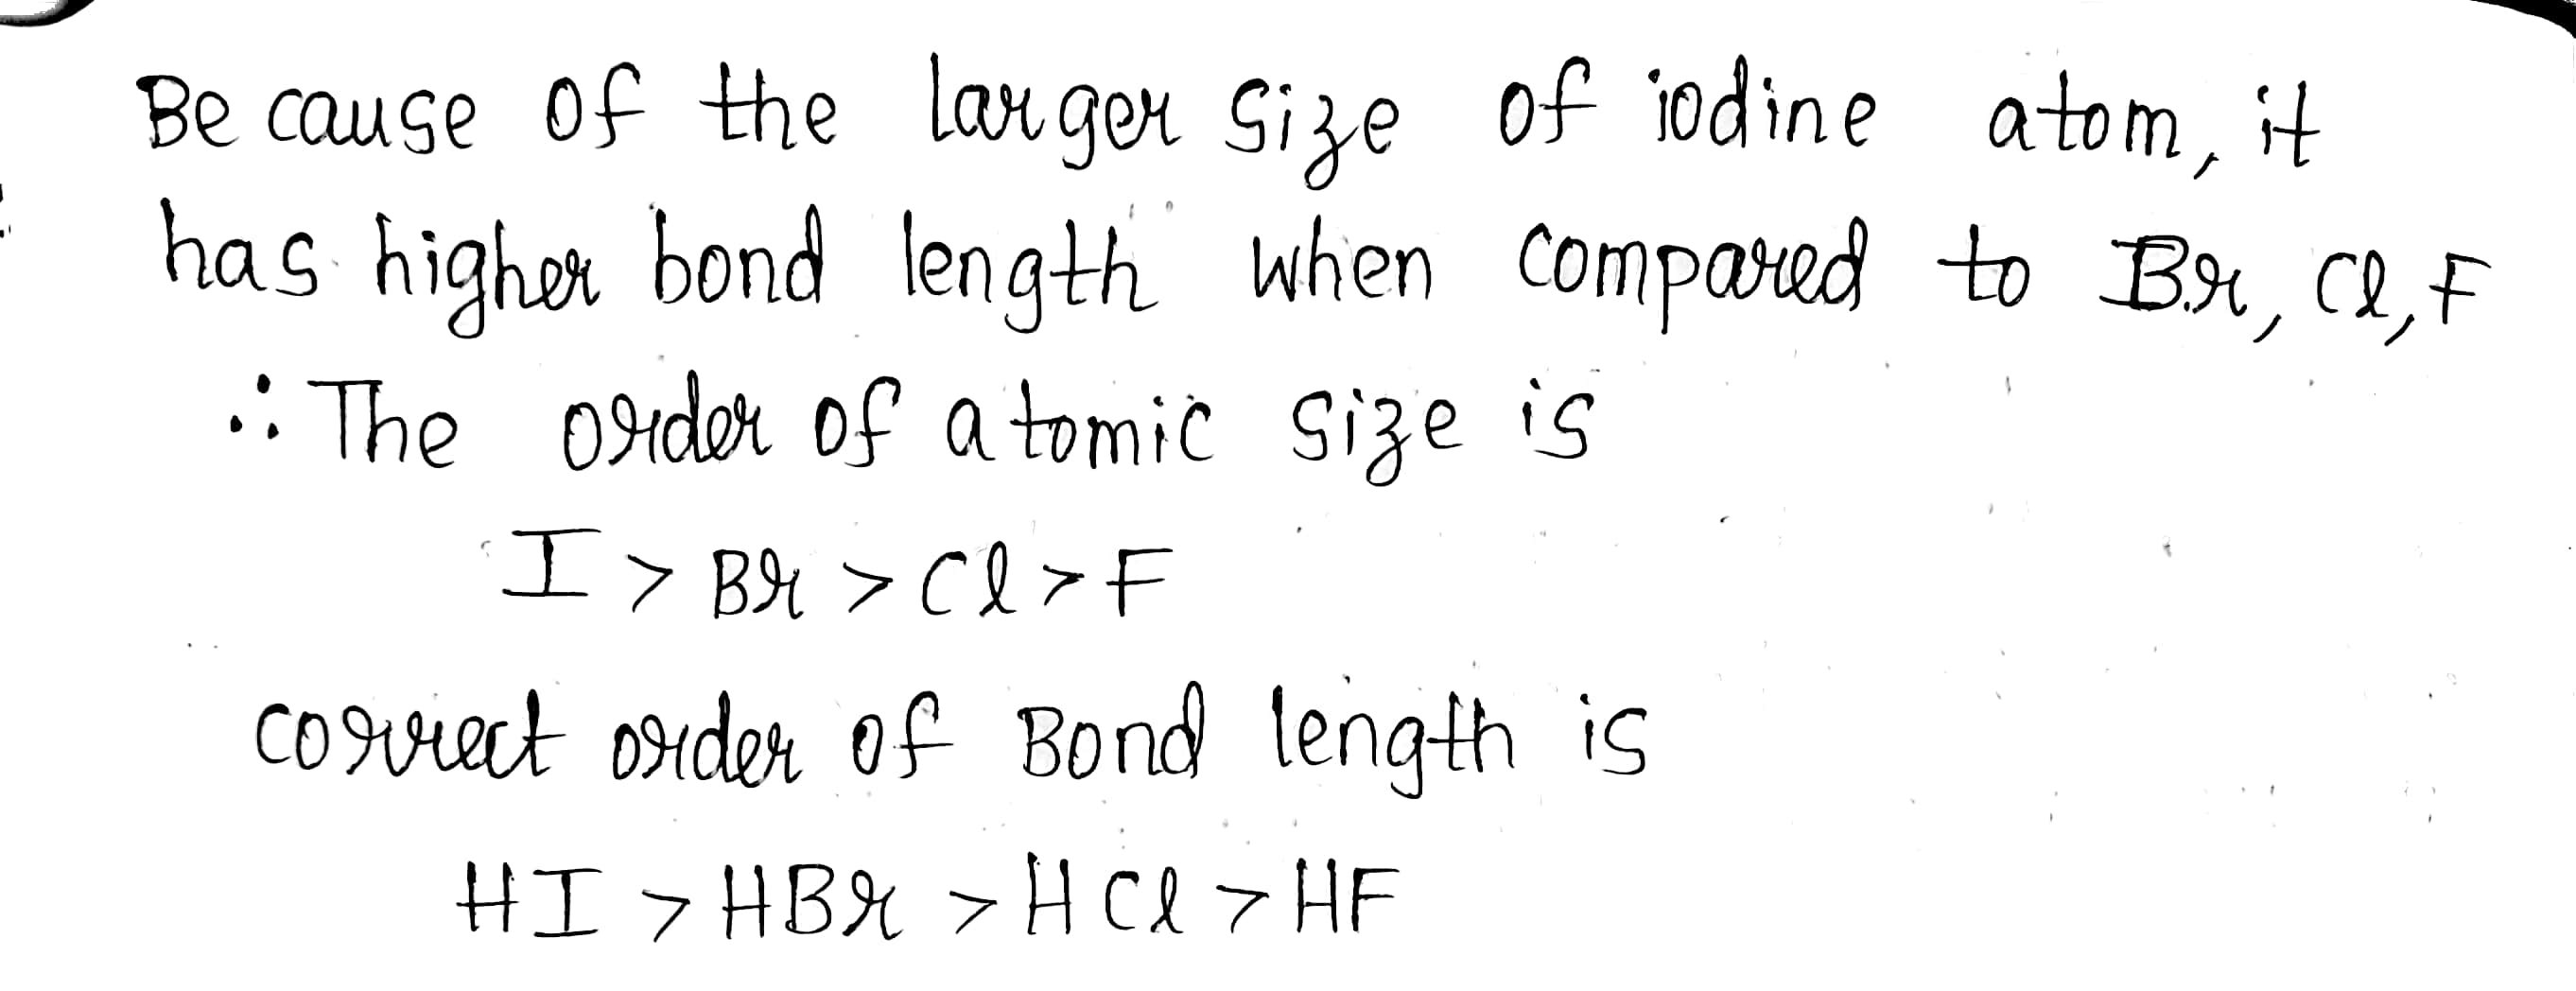 Because of the larger size of iodine atom, it
has higher bond length when compared to Br, Cl, F
∴ The order of atomic size is
I > Br > Cl > F
correct order of Bond length is
HI > HBr > HCl > HF